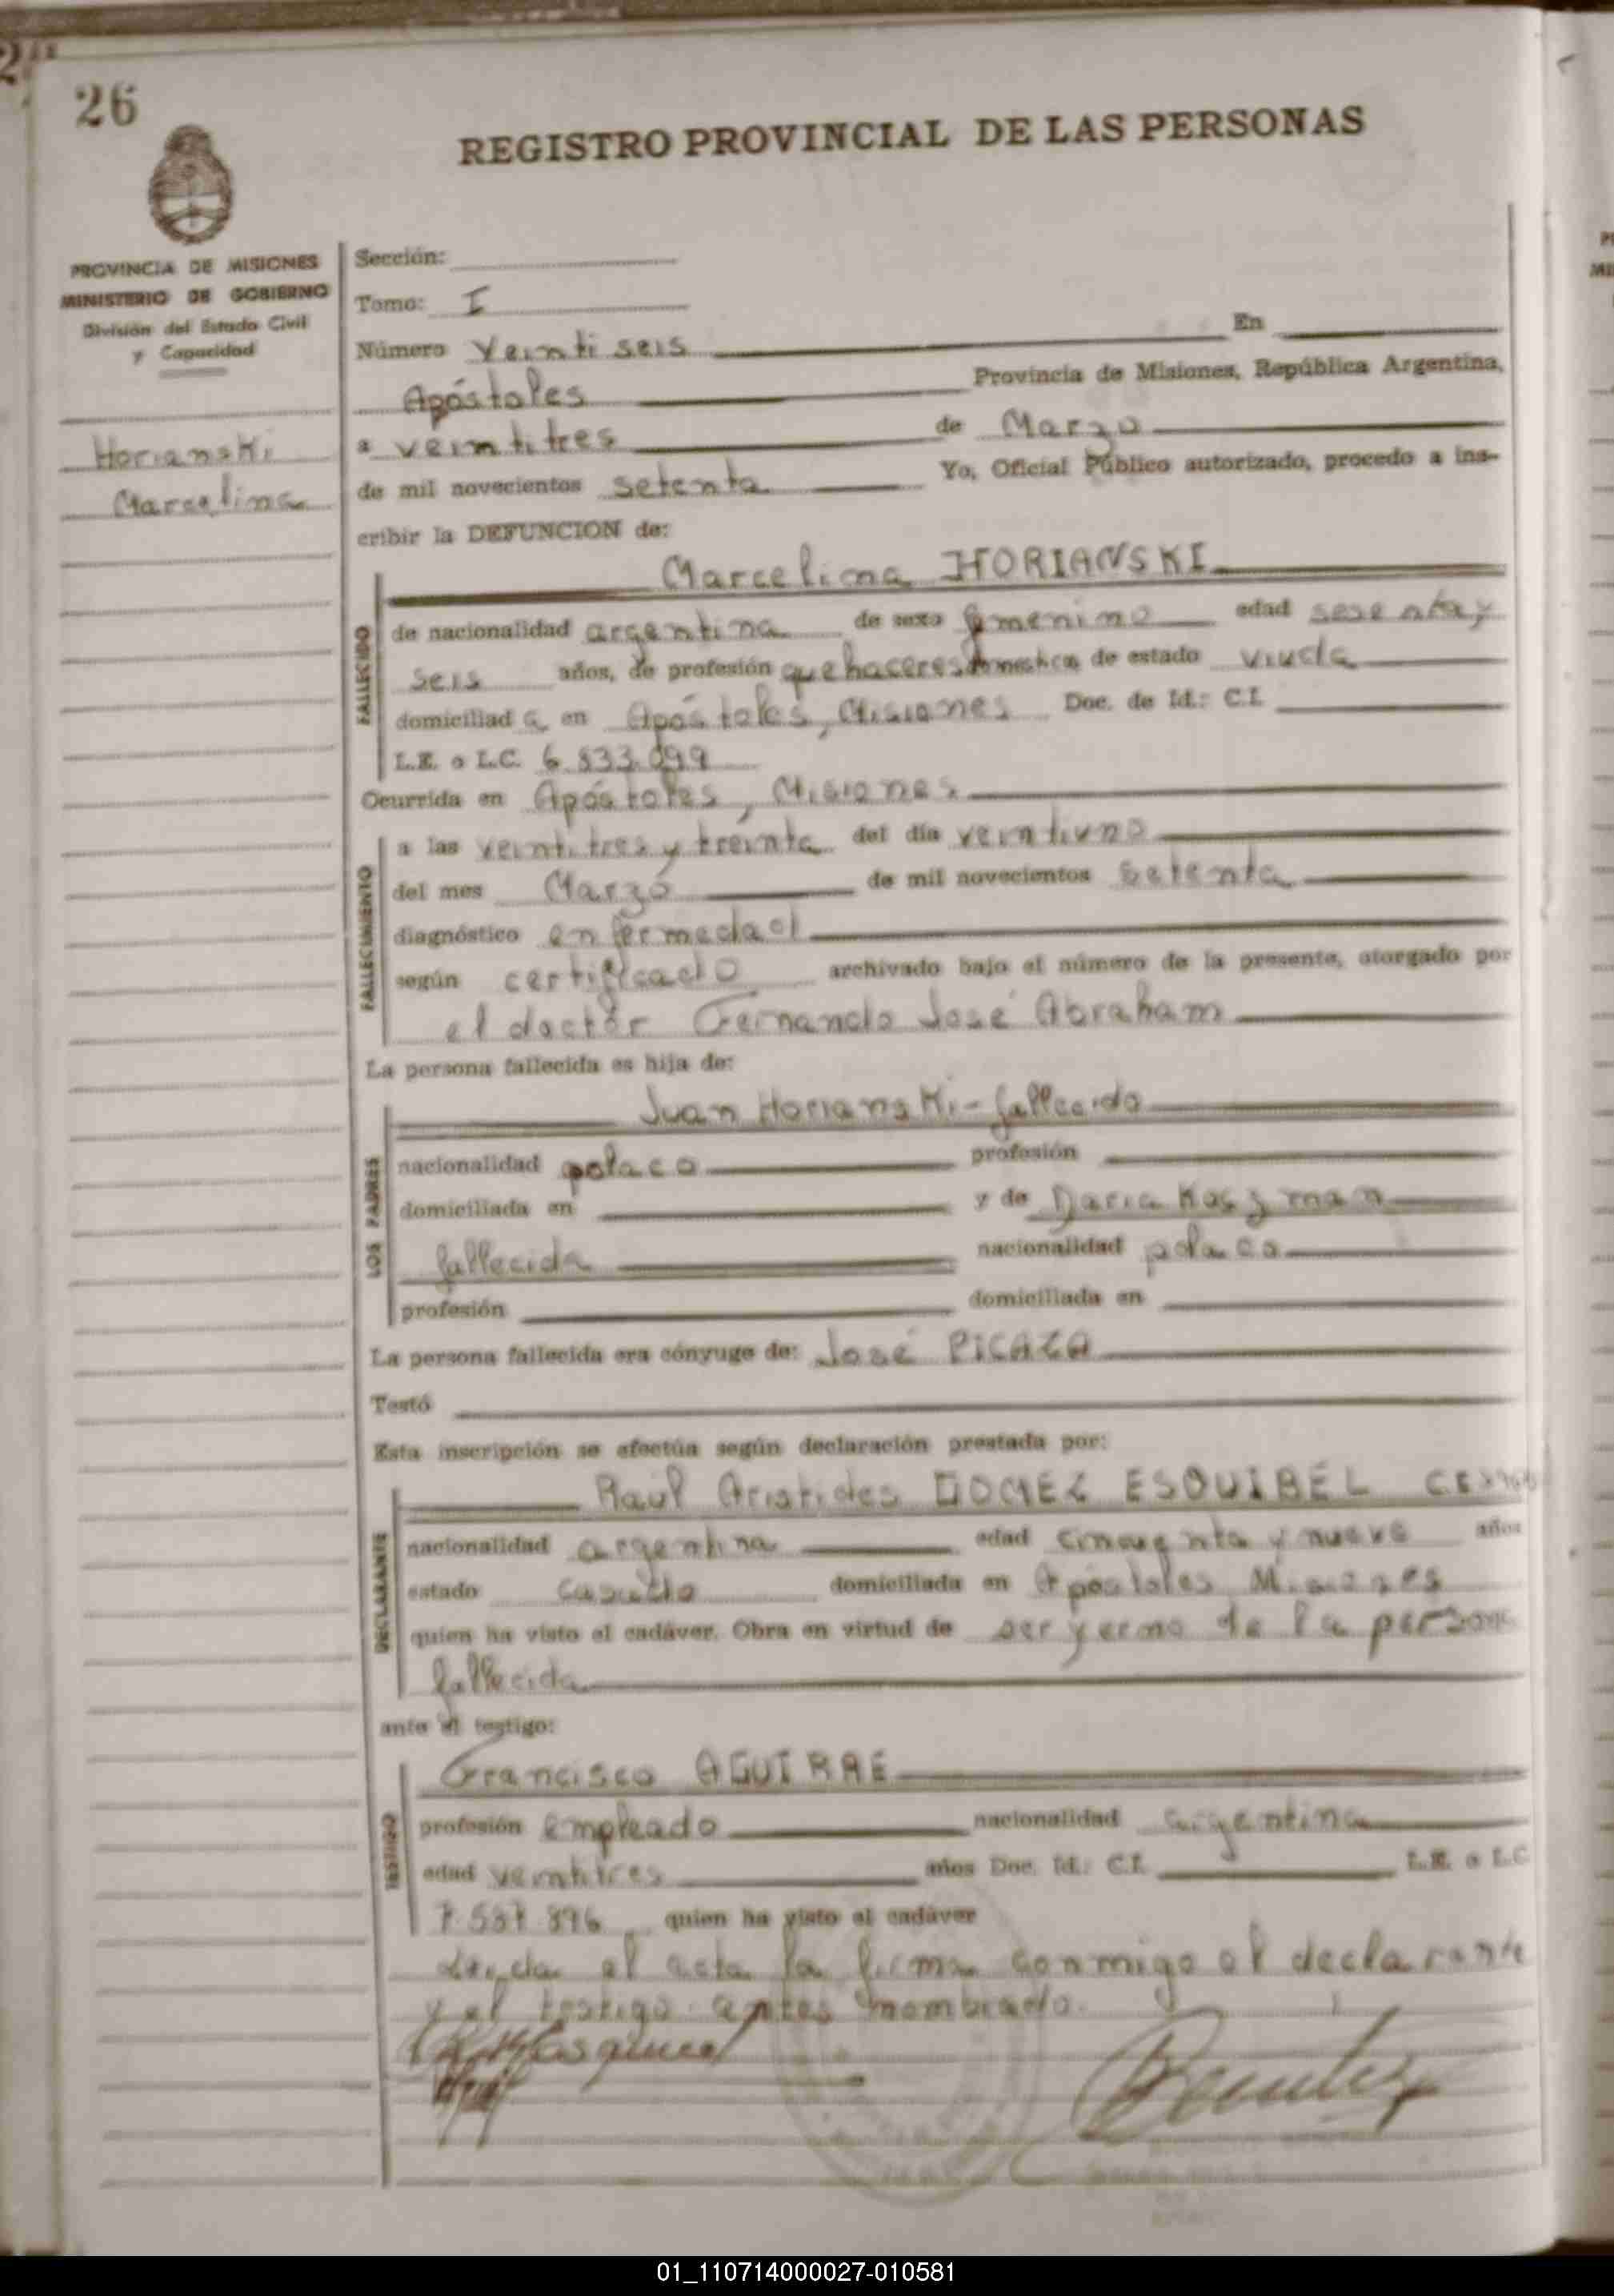 26
REGISTRO PROVINCIAL DE LAS PERSONAS
PROVINCIA DE MISIONES
MINISTERIO DE GOBIERNO
División del Estado Civil
y Capacidad
Horianski
Marcelina
Sección:
Tomo: I
Número Veintiseis En
Apóstoles Provincia de Misiones, República Argentina,
a veintitres de Marzo
de mil novecientos setenta Yo, Oficial Público autorizado, procedo a ins-
cribir la DEFUNCION de:
Marcelina HORIANSKI
FALLECIDO
de nacionalidad argentina de sexo femenino edad sesenta y
seis años, de profesión quehaceres domestica de estado viuda
domiciliad a en Apóstoles, Misiones Doc. de Id.: C.I.
L.E. o L.C. 6.833.099
Ocurrida en Apóstoles, Misiones
FALLECIMIENTO
a las veintitres y treinta del día veintiuno
del mes Marzo de mil novecientos setenta
diagnóstico enfermedad
según certificado archivado bajo el número de la presente, otorgado por
el doctor Fernando José Abraham
La persona fallecida es hija de:
LOS PADRES
Juan Horianski - fallecido
nacionalidad polaco profesión
domiciliada en y de Daria
fallecida nacionalidad polaca
profesión domiciliada en
La persona fallecida era cónyuge de: José PICAZA
Testó
Esta inscripción se efectúa según declaración prestada por:
DECLARANTE
Raúl Aristides GOMEZ ESQUIBEL
nacionalidad argentina edad cincuenta y nueve años
estado casado domiciliada en Apóstoles Misiones
quien ha visto el cadáver. Obra en virtud de ser yerno de la persona
fallecida
ante el testigo:
TESTIGO
Francisco AGUIRRE
profesión empleado nacionalidad argentina
edad veintitres años Doc. Id.: C.I. L.E. o L.C
7.537.896 quien ha visto el cadáver
Leída el acta la firma conmigo el declarante
y el testigo antes nombrado.
01_110714000027-010581